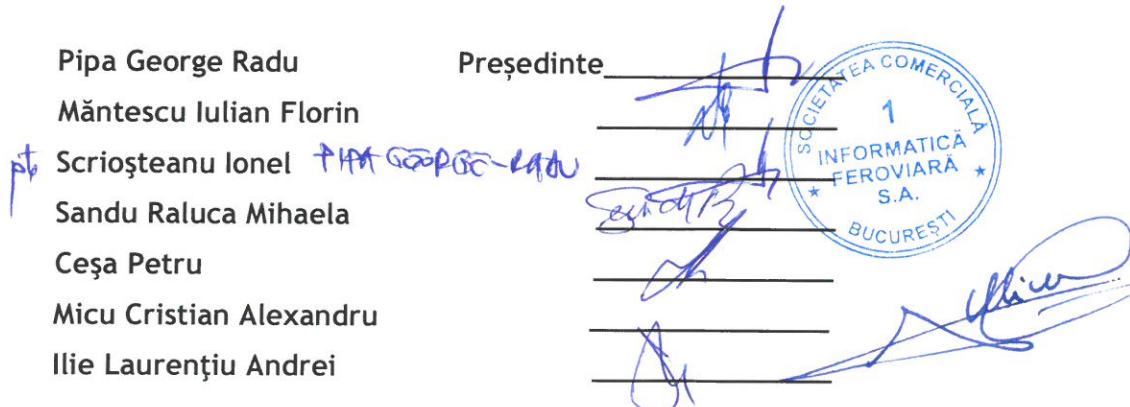 Pipa George Radu Președinte
Măntescu Iulian Florin
ptr Scrioşteanu Ionel PIPA GEORGE-RADU
Sandu Raluca Mihaela
Ceşa Petru
Micu Cristian Alexandru
Ilie Laurenţiu Andrei
SOCIETATEA COMERCIALĂ
1
INFORMATICĂ
FEROVIARĂ
S.A.
BUCUREȘTI